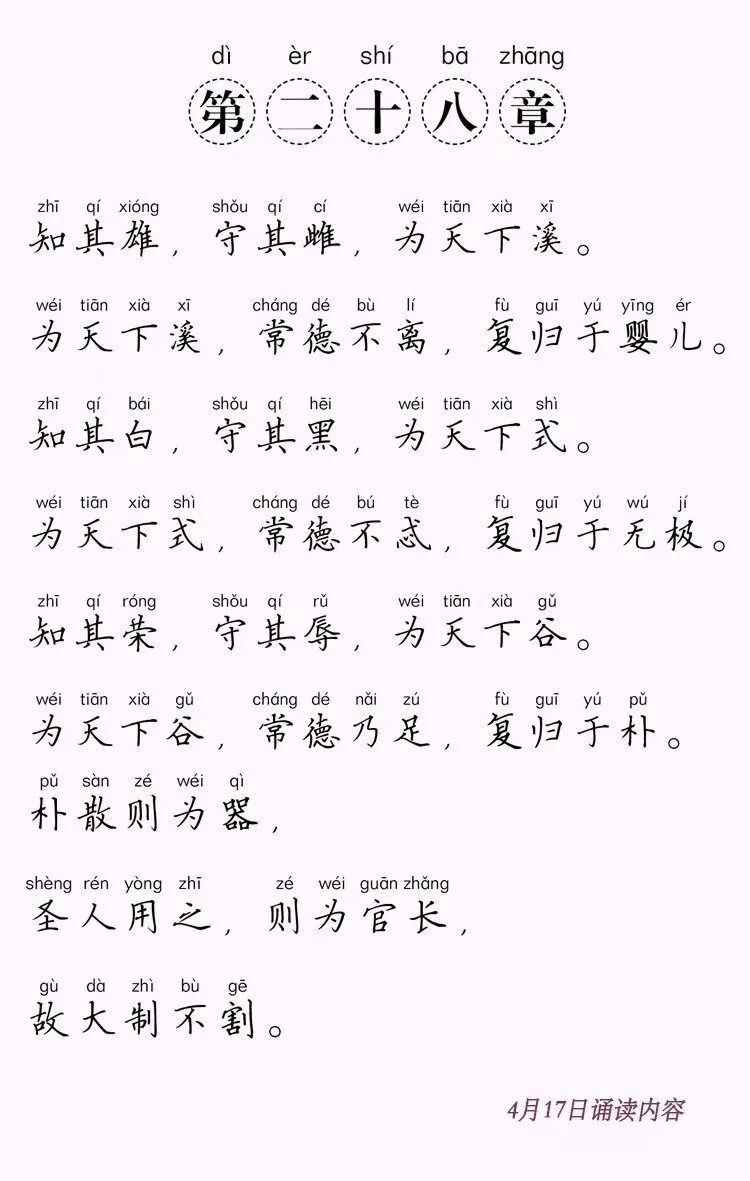 dì èr shí bā zhāng
第二十八章
zhī qí xióng shǒu qí cí wéi tiān xià xī
知其雄，守其雌，为天下溪。
wéi tiān xià xī cháng dé bù lí fù guī yú yīng ér
为天下溪，常德不离，复归于婴儿。
zhī qí bái shǒu qí hēi wéi tiān xià shì
知其白，守其黑，为天下式。
wéi tiān xià shì cháng dé bú tè fù guī yú wú jí
为天下式，常德不忒，复归于无极。
zhī qí róng shǒu qí rǔ wéi tiān xià gǔ
知其荣，守其辱，为天下谷。
wéi tiān xià gǔ cháng dé nǎi zú fù guī yú pǔ
为天下谷，常德乃足，复归于朴。
pǔ sàn zé wéi qì
朴散则为器，
shèng rén yòng zhī zé wéi guān zhǎng
圣人用之，则为官长，
gù dà zhì bù gē
故大制不割。
4月17日诵读内容